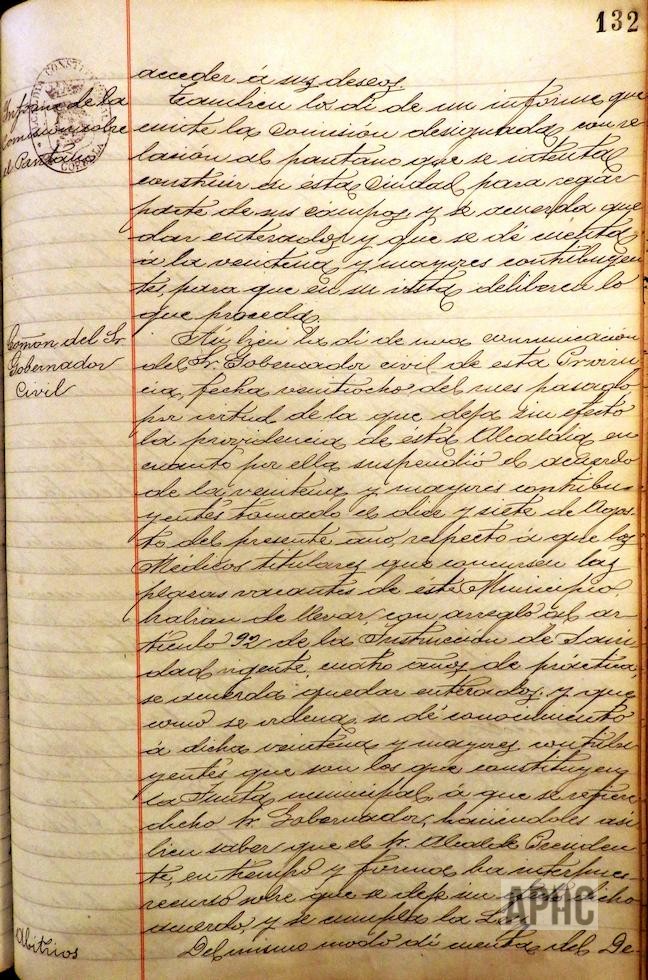 132
acceder á sus deseos.
Informe de la
Comision sobre
el Pantano
Tambien la dí de un informe que
emite la Comisión designada con re-
lación al pantano que se intenta
construir en ésta Ciudad para regar
parte de sus campos y se acuerda que
dar enterados y que se dé cuenta
á la veintena y mayores contribuyen
tes, para que en su vista deliberen lo
que proceda.
Comon del Sr
Gobernador
Civil
Así bien la dí de una comunicación
del Sr. Gobernador civil de esta Provin
cia, fecha veintiocho del mes pasado
por virtud de la que deja sin efecto
la providencia de ésta Alcaldía en
cuanto por ella suspendió el acuerdo
de la veintena y mayores contribu-
yentes tomado el diez y siete de Agos-
to del presente año, respecto á que los
Médicos titulares que concursen las
plazas vacantes de éste Municipio
habian de llevar, con arreglo al ar-
tículo 92 de la Instruccion de Sani-
dad vigente, cuatro años de práctica,
se acuerda quedar enterados, y que
como se ordena, se dé conocimiento
á dicha veintena y mayores contribu
yentes que son los que constituyen
la Junta municipal á que se refiere
dicho Sr. Gobernador, haciendoles asi
bien saber que el Sr. Alcalde Presiden
te, en tiempo y forma ha interpues-
recurso sobre que se deje sin dicho
acuerdo y se cumpla la Ley.
Abitrios
Del mismo modo dí cuenta del De-
APHC